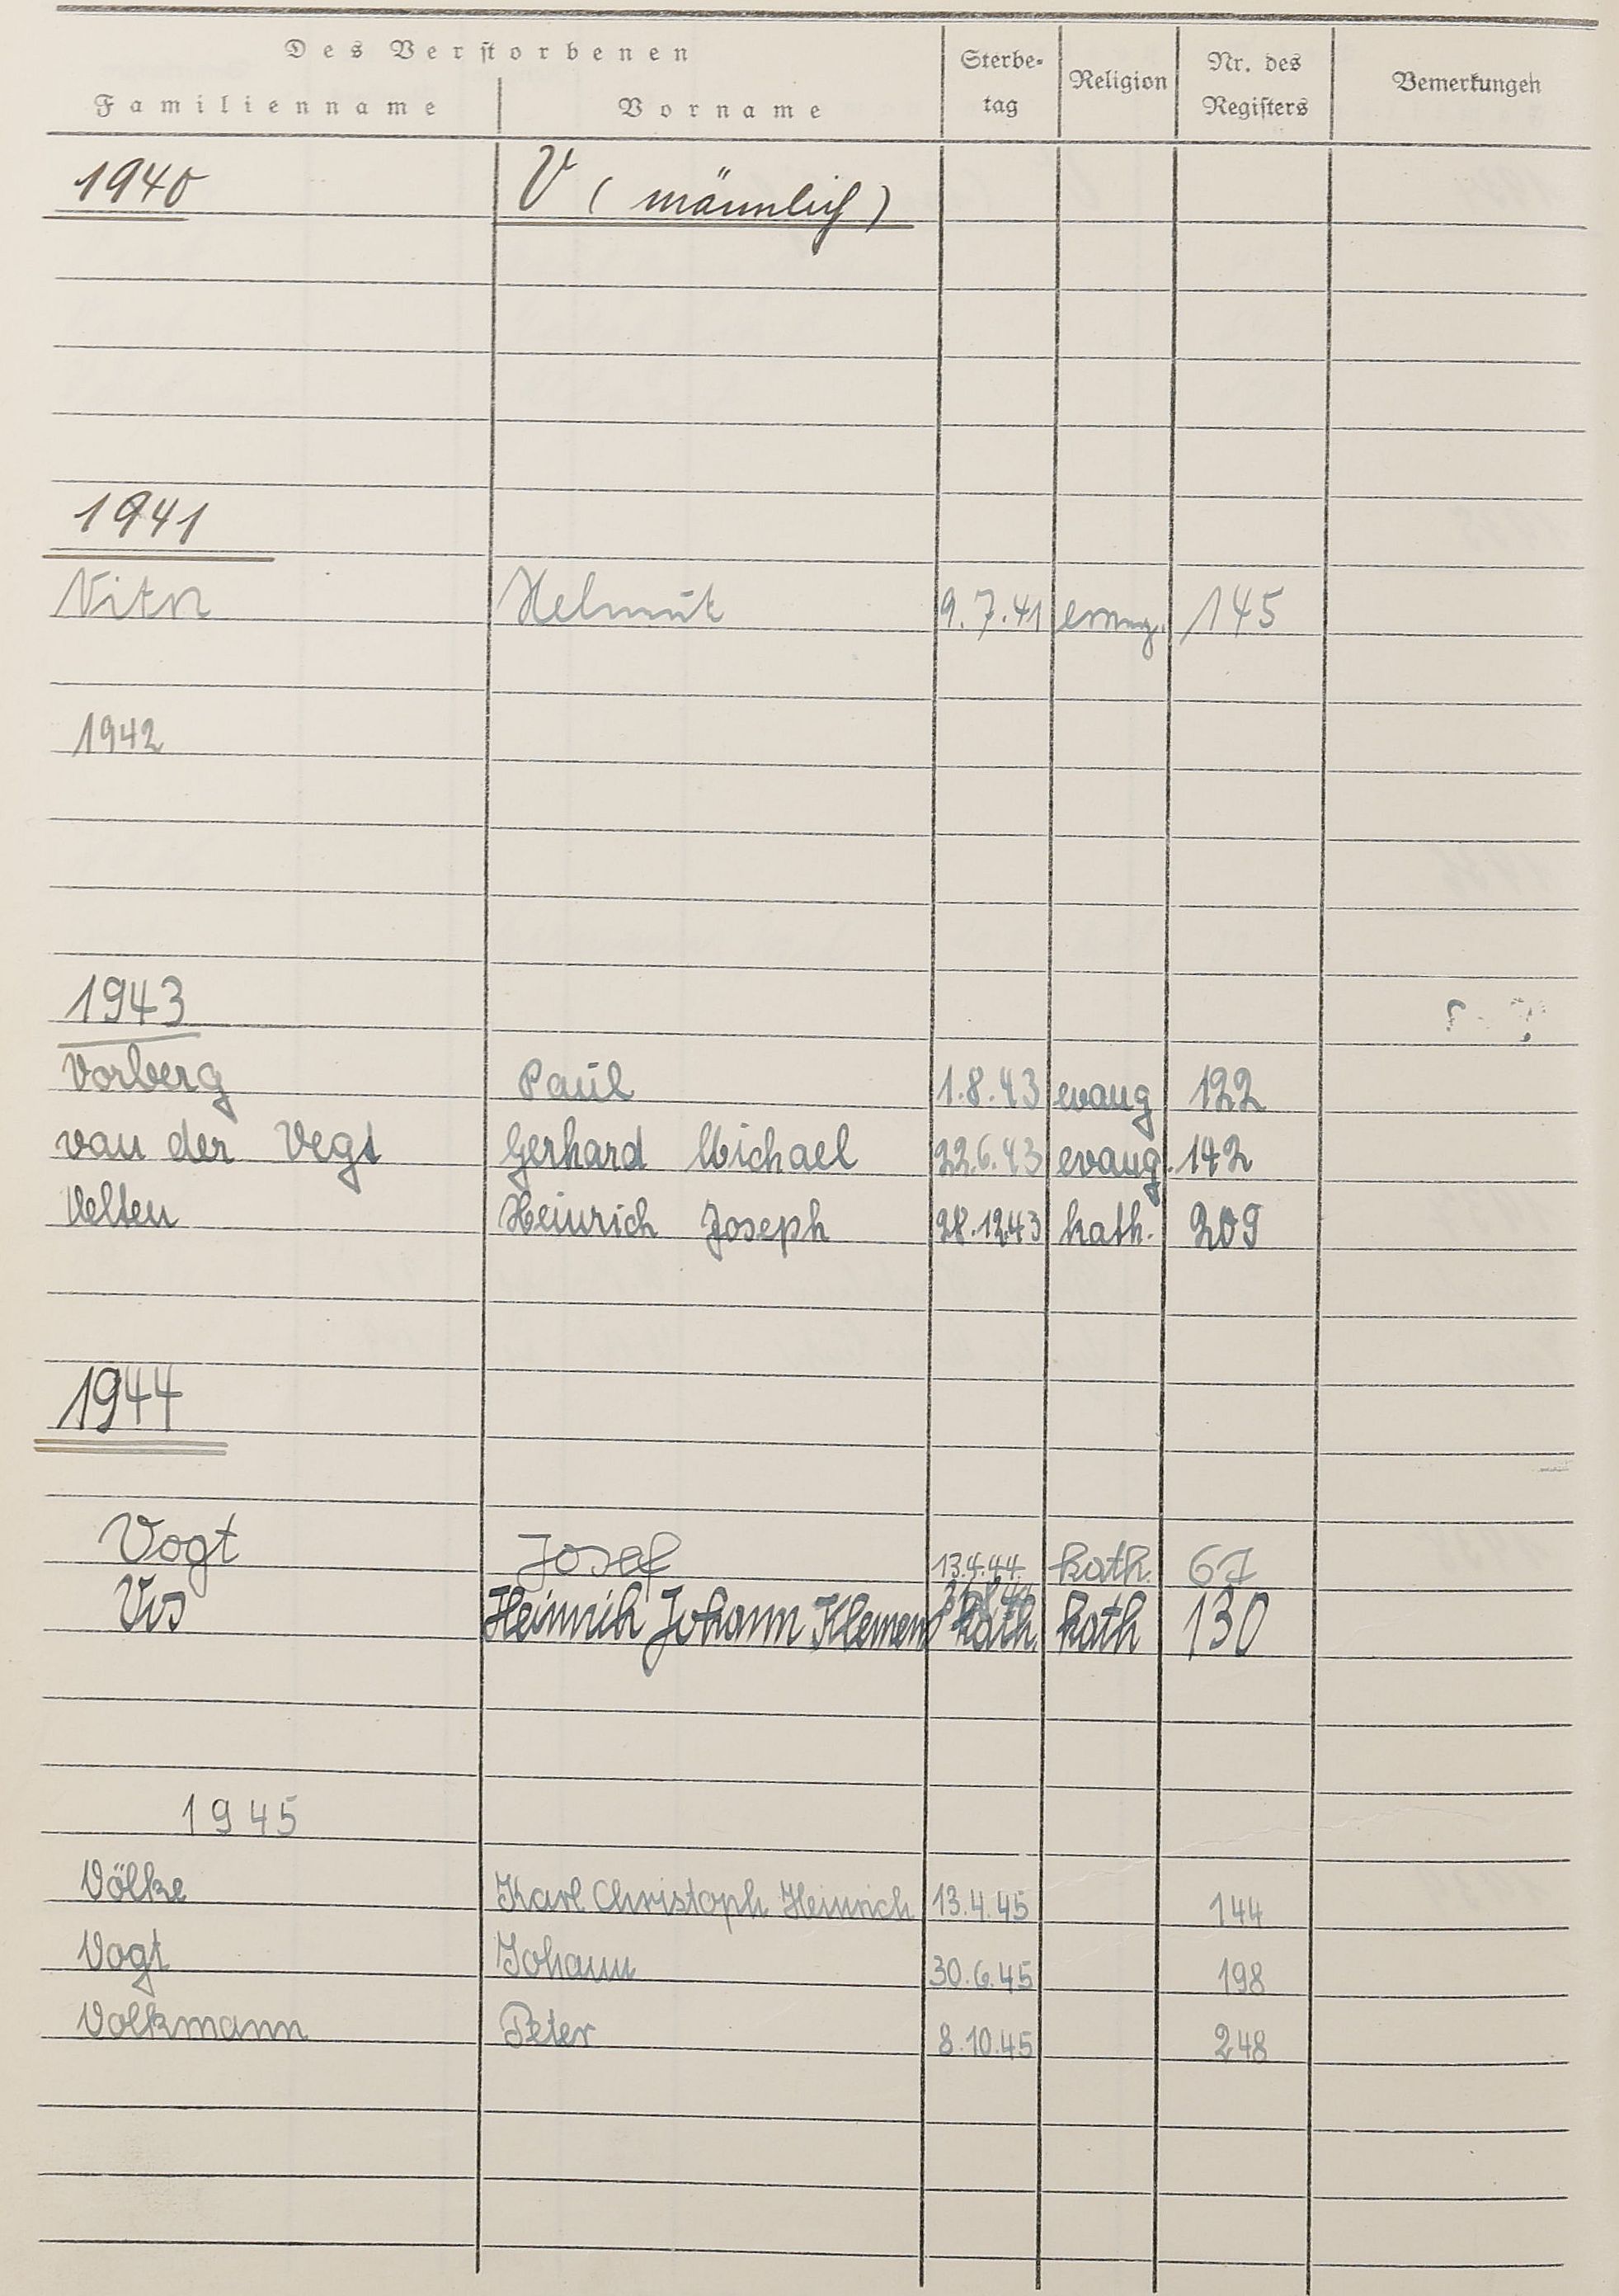 Des Verstorbenen
Familienname Vorname Sterbe-tag Religion Nr. des Registers Bemerkungen
1940 V (männlich)
1941
Helmut 9.7.41 evang. 145
1942
1943
Vorberg Paul 1.8.43 evang 122
van der Vegt Gerhard Michael 22.6.43 evang. 142
Velten Heinrich Joseph 28.12.43 kath. 209
1944
Vogt Josef 13.4.44 kath. 67
Vis Heinrich Johann Klemens kath. kath 130
1945
Völke Karl Christoph Heinrich 13.4.45 144
Vogt Johann 30.6.45 198
Volkmann Peter 8.10.45 248